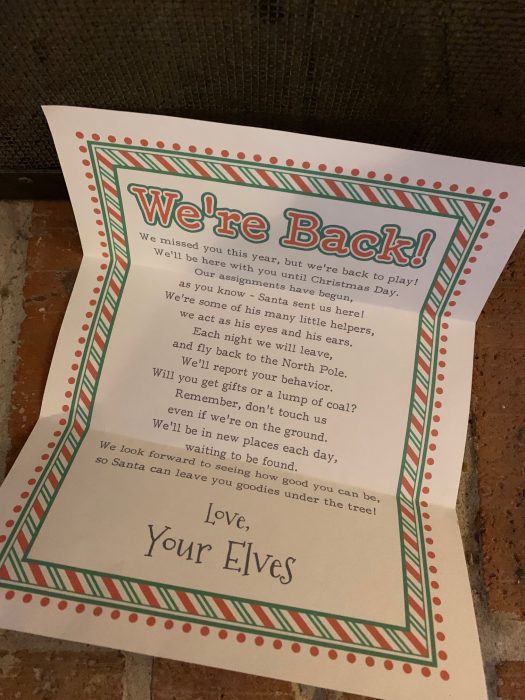 We're Back!
We missed you this year, but we're back to play!
We'll be here with you until Christmas Day.
Our assignments have begun,
as you know - Santa sent us here!
We're some of his many little helpers,
we act as his eyes and his ears.
Each night we will leave,
and fly back to the North Pole.
We'll report your behavior.
Will you get gifts or a lump of coal?
Remember, don't touch us
even if we're on the ground.
We'll be in new places each day,
waiting to be found.
We look forward to seeing how good you can be,
so Santa can leave you goodies under the tree!
Love,
Your Elves